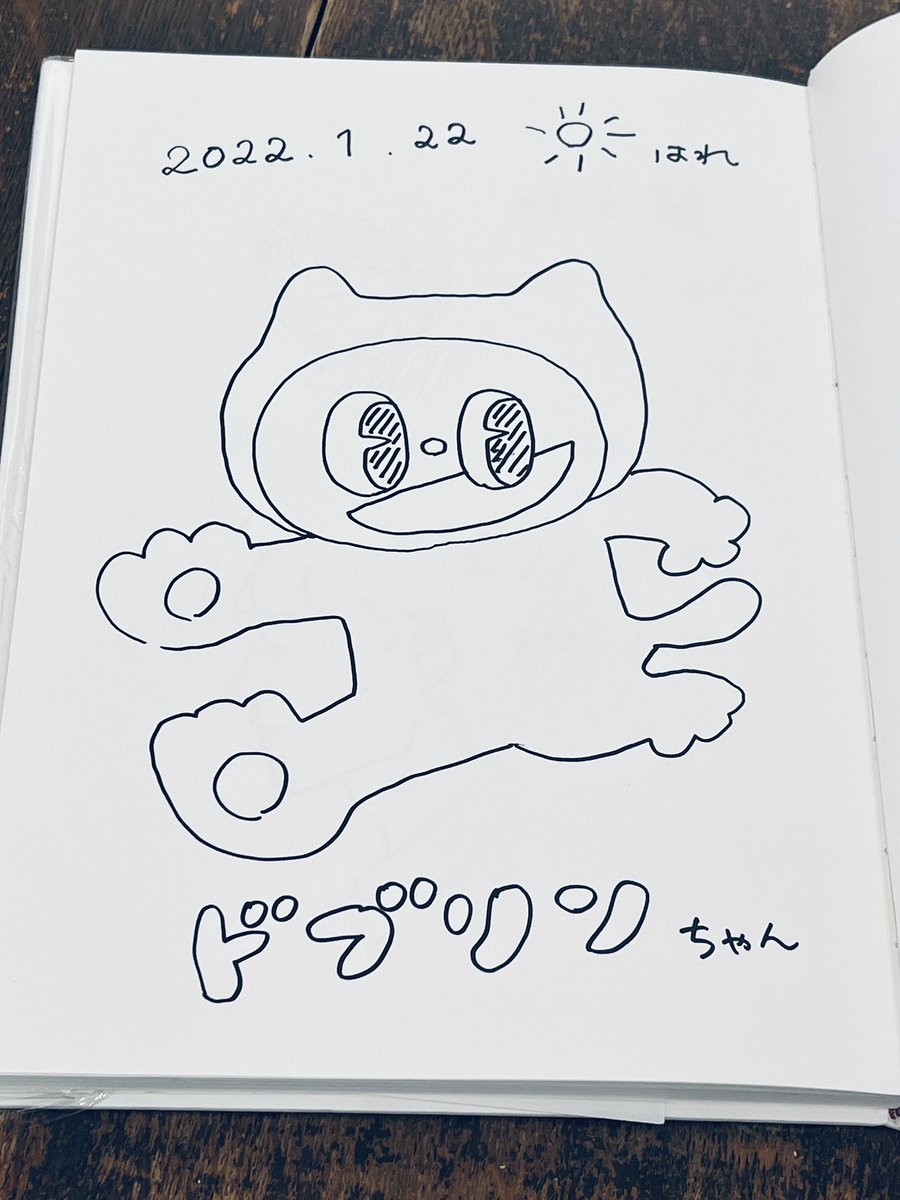 2022.1.22 はれ
ドブリンちゃん